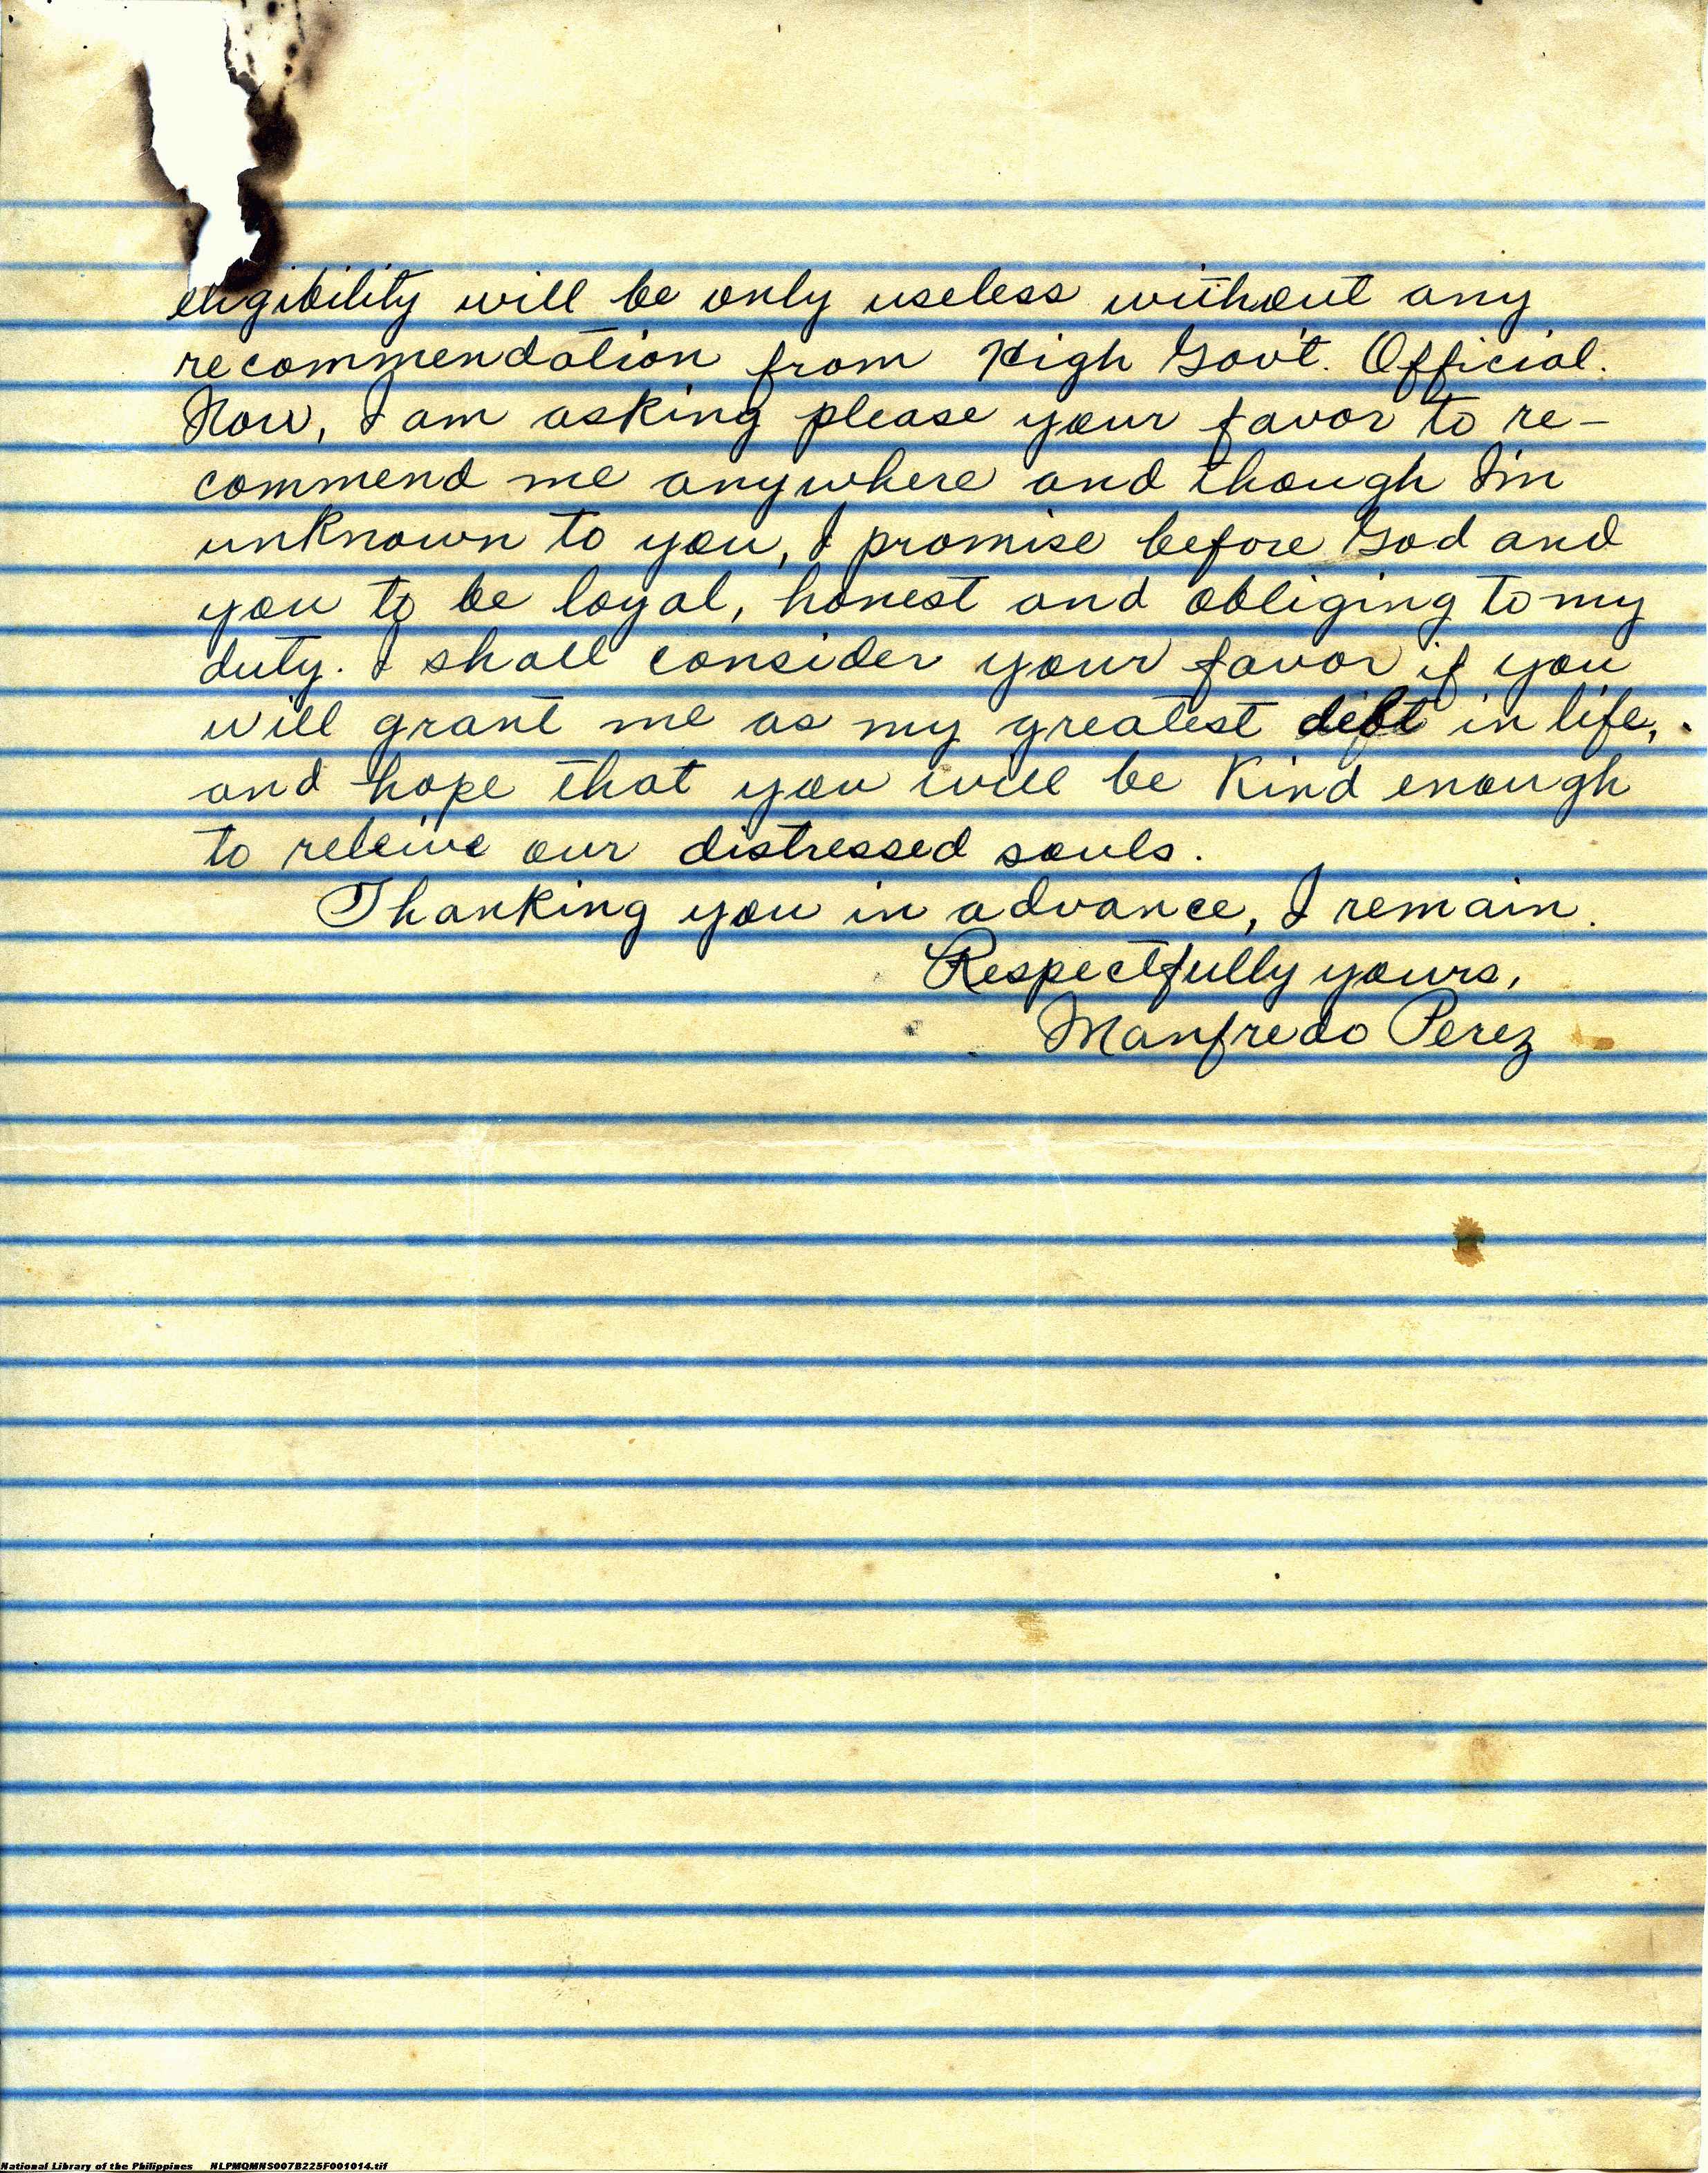 eligibility will be only useless without any
recommendation from High Gov't. Official.
Now, I am asking please your favor to re-
commend me anywhere and though I'm
unknown to you, I promise before God and
you to be loyal, honest and obliging to my
duty. I shall consider your favor if you
will grant me as my greatest debt in life,
and hope that you will be kind enough
to releive our distressed souls.
Thanking you in advance, I remain.
Respectfully yours,
Manfredo Perez
National Library of the Philippines NLPMQMNS007B225F001014.tif